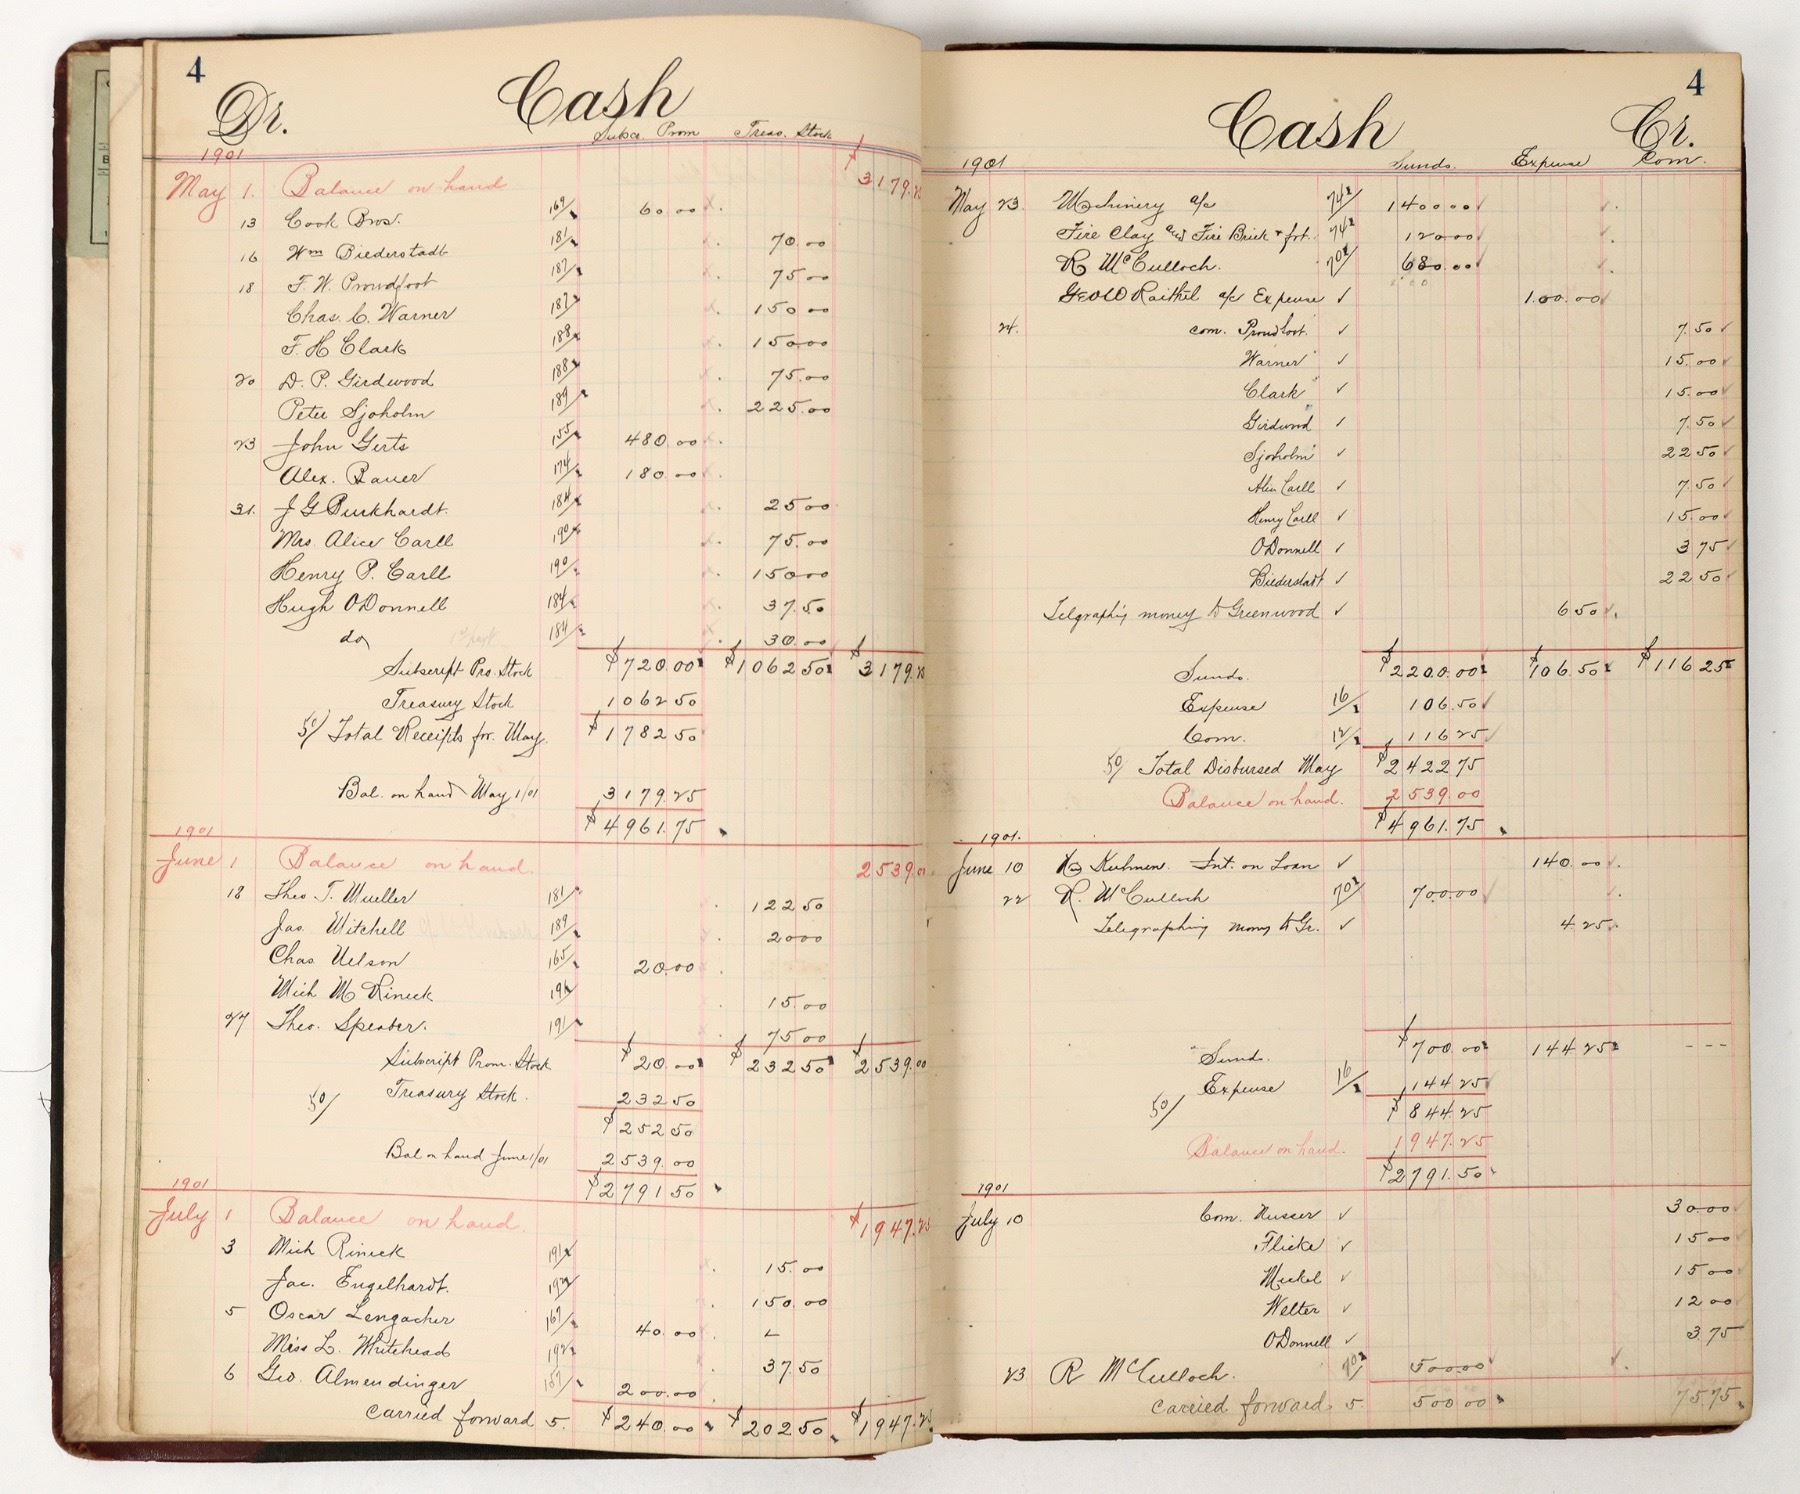 4
Dr. Cash
Subsc. Prom Treas. Stock
1901
May 1. Balance on hand $3179.25
13 Cook Bros. 169/ 60.00
16 Wm Biederstadt 181/ 70.00
18 F. W. Proudfoot 187/ 75.00
Chas. C. Warner 187/ 150.00
F. H Clark 188/ 150.00
20 D. P. Girdwood 188/ 75.00
Peter Sjoholm 189/ 225.00
23 John Gerts 155/ 480.00
Alex. Bauer 174/ 180.00
31. J G Burkhardt. 184/ 25.00
Mrs. Alice Carll 190/ 75.00
Henry P. Carll 190/ 150.00
Hugh O'Donnell 184/ 37.50
do 184/ 30.00
Subscript Pro. Stock $720.00 $1062.50 $3179.25
Treasury Stock 1062.50
50/ Total Receipts for. May. $1782.50
Bal. on hand May 1/01 3179.25
$4961.75
1901
June 1 Balance on hand. 2539.00
18 Theo. T. Mueller 181/ 122.50
Jas. Mitchell 189/ 20.00
Chas Nelson 165/ 20.00
Mich M Rineck 191/ 15.00
27 Theo. 191/ 75.00
Subscript Prom. Stock $20.00 $232.50 $2539.00
Treasury Stock. 232.50
50/ $252.50
Bal on hand June 1/01 2539.00
$2791.50
1901
July 1 Balance on hand. $1947.25
3 Mich Rineck 191/ 15.00
Jac. Engelhardt. 192/ 150.00
5 Oscar Lengacher 167/ 40.00
Miss L. Whitehead 192/ 37.50
6 Geo. Almendinger 157/ 200.00
Carried forward 5. $240.00 $202.50 $1947.25
4
Cash Cr.
1901 Sunds. Expense Com.
May 23. Machinery a/c 74/ 1400.00
Fire Clay and Fire Brick & frt. 74/ 120.00
R McCulloch. 70/ 680.00
Geo W Raithel a/c Expense ✓ 100.00
24. com. Proudfoot ✓ 7.50
Warner ✓ 15.00
Clark ✓ 15.00
Girdwood ✓ 7.50
Sjoholm ✓ 22.50
Alice Carll ✓ 7.50
Henry Carll ✓ 15.00
O'Donnell ✓ 3.75
Biederstadt ✓ 22.50
Telegraphing money to Greenwood ✓ 6.50
Sunds. $2200.00 $106.50 $116.25
Expense 16/ 106.50
Com. 12/ 116.25
50/ Total Disbursed May $2422.75
Balance on hand. 2539.00
$4961.75
1901.
June 10 Kuhnen. Int. on Loan ✓ 140.00
22 R. McCulloch 70/ 700.00
Telegraphing money to Gr. ✓ 4.25
Sund. $700.00 144.25 ---
Expense 16/ 144.25
50/ $844.25
Balance on hand. 1947.25
$2791.50
1901
July 10 Com. Nusser ✓ 30.00
Flicke ✓ 15.00
Mickel ✓ 15.00
Welter ✓ 12.00
O'Donnell ✓ 3.75
23 R McCulloch. 70/ 500.00
Carried forward. 5 500.00 75.75